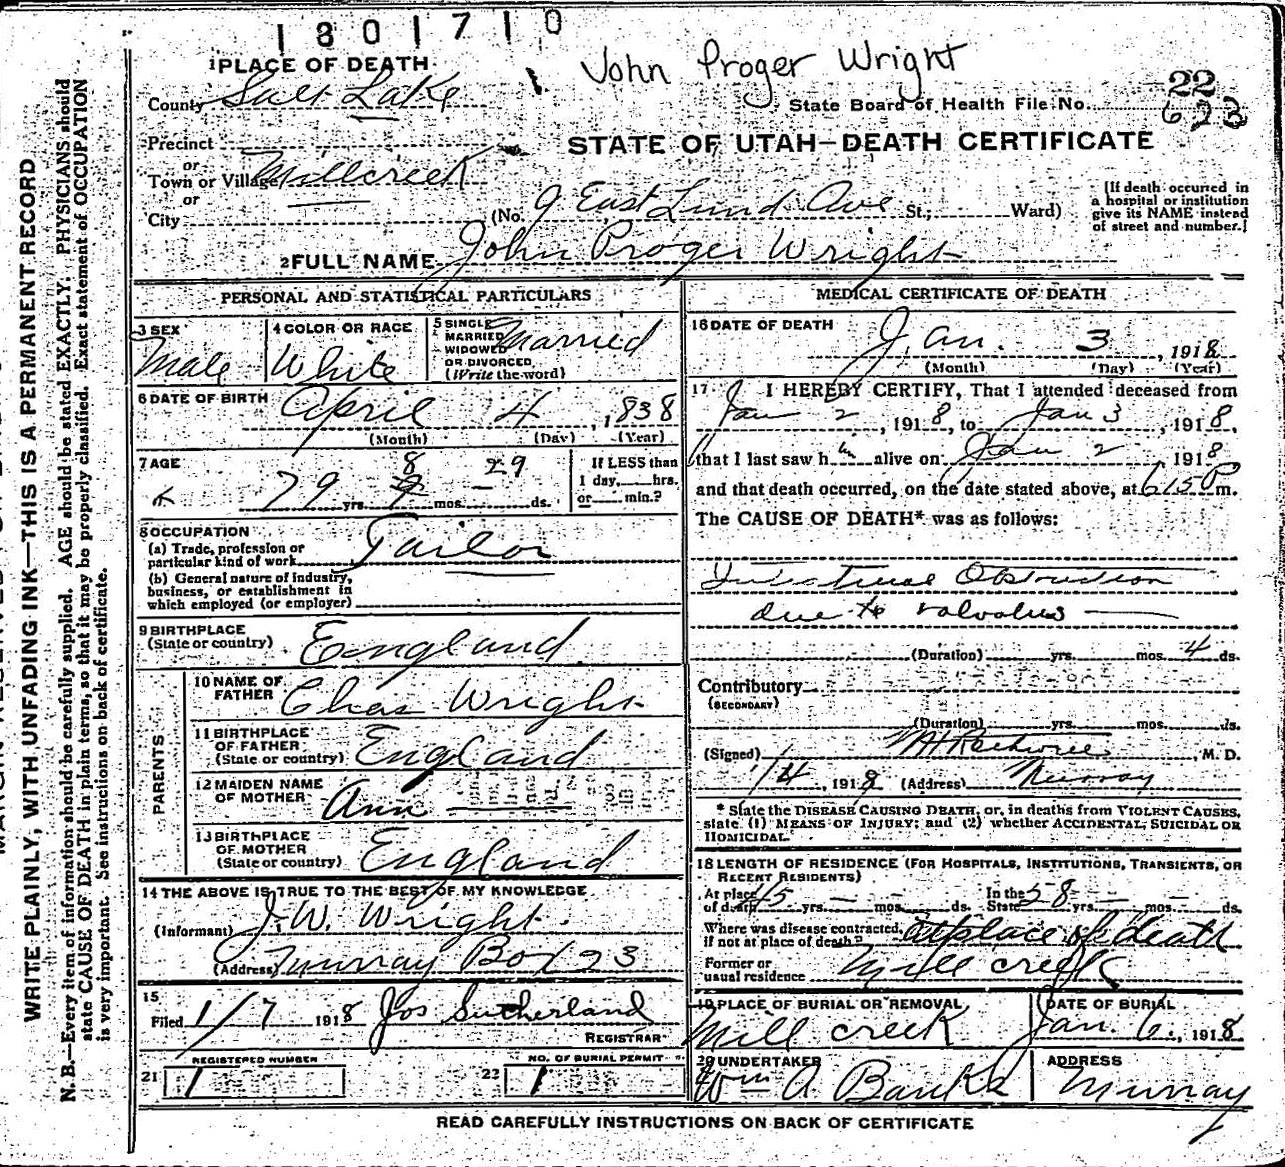 1801710
John Proger Wright
1 PLACE OF DEATH
County Salt Lake
State Board of Health File No. 22
623
STATE OF UTAH—DEATH CERTIFICATE
Precinct
or
Town or Village Millcreek
or
City (No. 9 East Lund Ave St.; Ward)
(If death occurred in
a hospital or institution
give its NAME instead
of street and number.)
2 FULL NAME John Proger Wright
PERSONAL AND STATISTICAL PARTICULARS
3 SEX Male
4 COLOR OR RACE White
5 SINGLE
MARRIED
WIDOWED
OR DIVORCED
(Write the word) Married
6 DATE OF BIRTH April 4, 1838
(Month) (Day) (Year)
7 AGE 79 yrs. 8 mos. 29 ds.
If LESS than
1 day, hrs.
or min.?
8 OCCUPATION
(a) Trade, profession or
particular kind of work Tailor
(b) General nature of industry,
business, or establishment in
which employed (or employer)
9 BIRTHPLACE
(State or country) England
PARENTS
10 NAME OF
FATHER Chas Wright
11 BIRTHPLACE
OF FATHER
(State or country) England
12 MAIDEN NAME
OF MOTHER Ann
13 BIRTHPLACE
OF MOTHER
(State or country) England
14 THE ABOVE IS TRUE TO THE BEST OF MY KNOWLEDGE
(Informant) J.W. Wright
(Address) Murray Box 23
15
Filed 1/7 1918 Jos Sutherland
REGISTRAR
REGISTERED NUMBER
21 1
NO. OF BURIAL PERMIT
22 1
MEDICAL CERTIFICATE OF DEATH
16 DATE OF DEATH
Jan. 3, 1918
(Month) (Day) (Year)
17 I HEREBY CERTIFY, That I attended deceased from
Jan 2, 1918, to Jan 3, 1918,
that I last saw him alive on Jan 2 1918
and that death occurred, on the date stated above, at 615 P m.
The CAUSE OF DEATH* was as follows:
Intestinal Obstruction
due to valvolus
(Duration) yrs. mos. 4 ds.
Contributory
(SECONDARY)
(Duration) yrs. mos. ds.
(Signed) , M. D.
1/4, 1918 (Address) Murray
* State the DISEASE CAUSING DEATH, or, in deaths from VIOLENT CAUSES,
state (1) MEANS OF INJURY; and (2) whether ACCIDENTAL, SUICIDAL OR
HOMICIDAL.
18 LENGTH OF RESIDENCE (FOR HOSPITALS, INSTITUTIONS, TRANSIENTS, OR
RECENT RESIDENTS)
At place
of death 45 yrs. — mos. — ds. In the
State 58 yrs. — mos. — ds.
Where was disease contracted,
if not at place of death? at place of death
Former or
usual residence Mill creek
19 PLACE OF BURIAL OR REMOVAL
Mill creek
DATE OF BURIAL
Jan. 6, 1918
20 UNDERTAKER
Wm A Banks
ADDRESS
Murray
READ CAREFULLY INSTRUCTIONS ON BACK OF CERTIFICATE
WRITE PLAINLY, WITH UNFADING INK—THIS IS A PERMANENT RECORD
N. B.—Every item of information should be carefully supplied. AGE should be stated EXACTLY. PHYSICIANS should
state CAUSE OF DEATH in plain terms, so that it may be properly classified. Exact statement of OCCUPATION
is very important. See instructions on back of certificate.